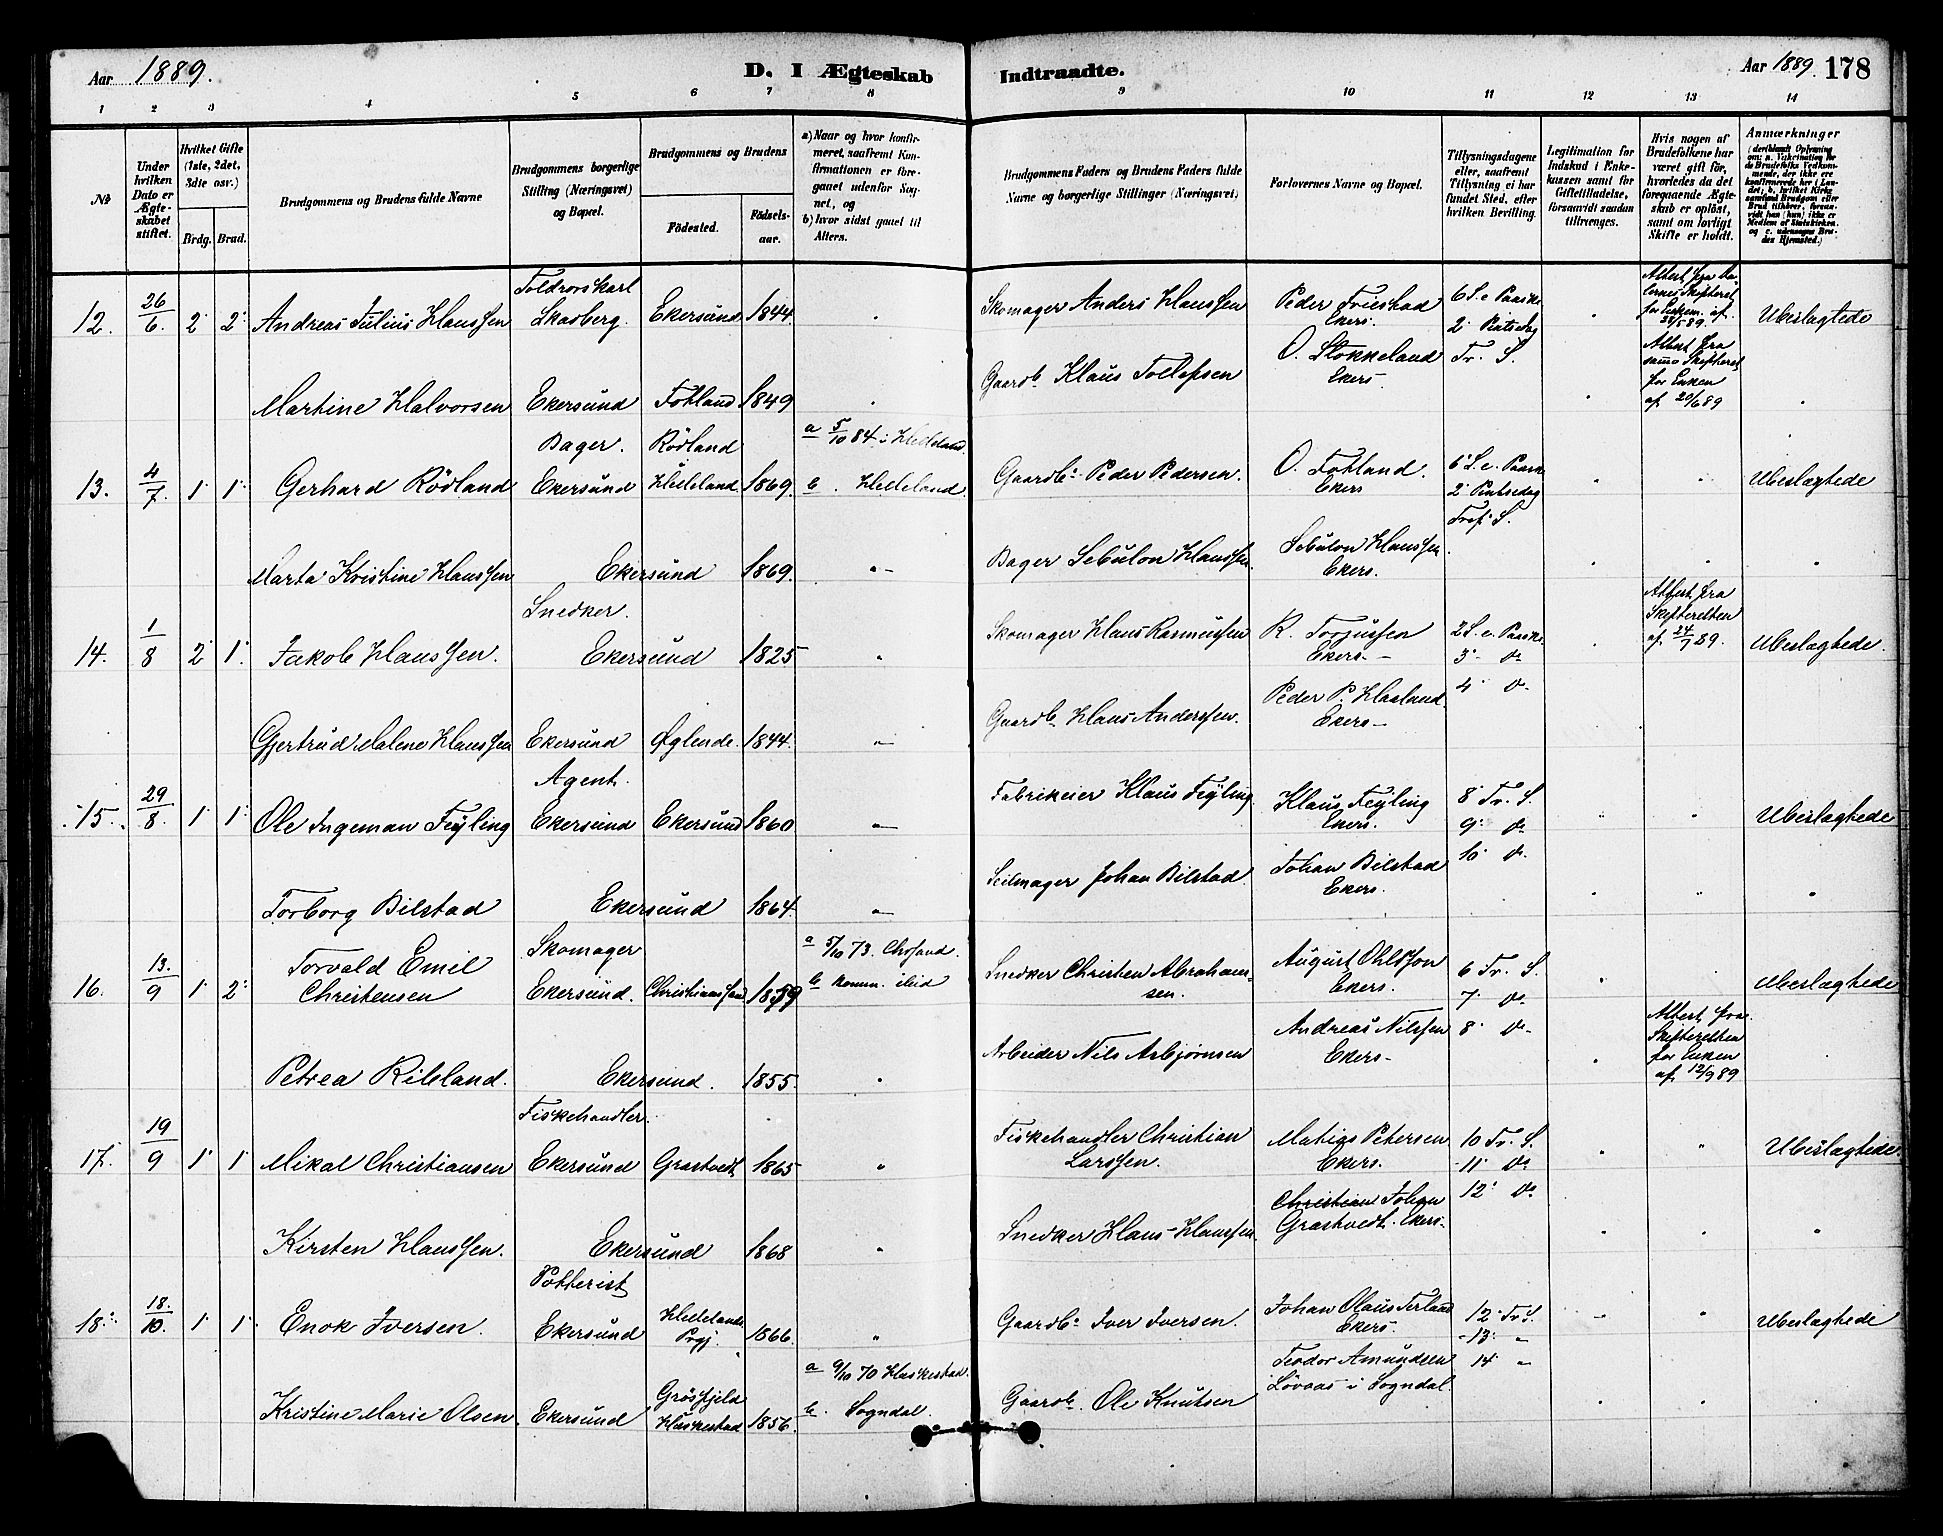 Aar 1889.
D. I Ægteskab
Indtraadte.
Aar 1889. 178
1 2 3 4 5 6 7 8 9 10 11 12 13 14
No
Under hvilken Dato er Ægteskabet stiftet.
Hvilket Gifte (1ste, 2det, 3die osv.)
Brdg. Brud.
Brudgommens og Brudens fulde Navne
Brudgommens borgerlige Stilling (Næringsvei) og Bopæl.
Brudgommens og Brudens
Födested.
Födselsaar.
a) Naar og hvor konfirmeret, saafremt Konfirmationen er foregaaet udenfor Sognet, og
b) hvor sidst gaaet til Alters.
Brudgommens Faders og Brudens Faders fulde Navne og borgerlige Stillinger (Næringsvei).
Forlovernes Navne og Bopæl.
Tillysningsdagene eller, saafremt Tillysning ei har fundet Sted, efter hvilken Bevilling.
Legitimation for Indskud i Enkekassen samt for Giftetilladelse, forsaavidt saadan tiltrænges.
Hvis nogen af Brudefolkene har været gift før, hvorledes da det foregaaende Ægteskab er opløst, samt om lovligt Skifte er holdt.
Anmærkninger
12. 26/6. 2 2 Andreas Julius Klaussen Toldrorskarl Skasberg. Ekersund 1844. Skomager Anders Klaussen Peder Friestad Ekers. 6 S. e. Paaske 2 Pintsedag Ubeslægtede
Martine Halvorsen Ekersund Fotland 1849 Gaardb. Klaus Tollefsen O. Stokkeland Ekers. Tr. S. Attest fra samme Skifteret for Enken af 20/6 89
13. 4/7. 1 1 Gerhard Rödland Bager. Ekersund Rödland Helleland 1869. a 5/10 84 i Helleland b. Helleland Gaardb. Peder Pedersen. O. Fotland Ekers 6 S. e. Paaske 2 Pintsedag Tref. S. Ubeslægtede
Marta Kristine Klaussen Ekersund 1869. Bager Sebulon Klaussen Sebulon Klaussen Ekers.
14. 1/8 2 1. Jakob Klaussen. Snedker. Ekersund 1825 Skomager Klaus Rasmussen K. Torjussen Ekers. 2 S. e. Paaske 3 do Attest fra Skifteretten af 24/7 89. Ubeslægtede.
Gjertrud Malene Klaussen Ekersund Øglende. 1844. Gaardb. Klaus Anderssen. Peder P. Haaland Ekers 4 do
15. 29/8. 1 1 Ole Ingeman Feyling Agent. Ekersund Ekersund 1860 Fabrikeier Klaus Feyling Klaus Feyling Ekers. 8 Tr. S. 9 do Ubeslægtede
Torborg Bilstad Ekersund 1864. Seilmager Johan Bilstad. Johan Bilstad Ekers. 10 do
16. 13./9 1 2 Torvald Emil Christensen Skomager Ekersund. Christianssand 1859 a 5/10 73. Chrsand. b komm. ibid Snedker Christen Abrahamsen. August Ohlsson Ekers. 6 Tr. S. 7 do Ubeslægtede
Petrea Rileland. Ekersund. 1855. Arbeider Nils Asbjørnsen Andreas Nilssen Ekers 8 do Attest fra Skifteretten for Enken af 12/9 89
17. 19/9 1 1 Mikal Christiansen Fiskehandler. Ekersund Grastvedt 1865 Fiskehandler Christian Larssen. Matias Petersen Ekers. 10 Tr. S. 11 do Ubeslægtede.
Kirsten Klaussen. Ekersund 1868 Snedker Klaus Klaussen. Christian Johan Grastvedt. Ekers. 12 do
18. 18./10. 1 1 Enok Iversen. Potterist Ekersund Hellelands Prgj. 1866. Gaardb. Iver Iversen. Johan Olaus Terland Ekers. 12 Tr. S. 13 " Ubeslægtede
Kristine Marie Olsen. Ekersund Grösfjeld Huskestad 1856. a 9/10 70 Huskestad. b. Sogndal. Gaardb. Ole Knutsen Teodor Amundsen Lövaas i Sogndal. 14 "